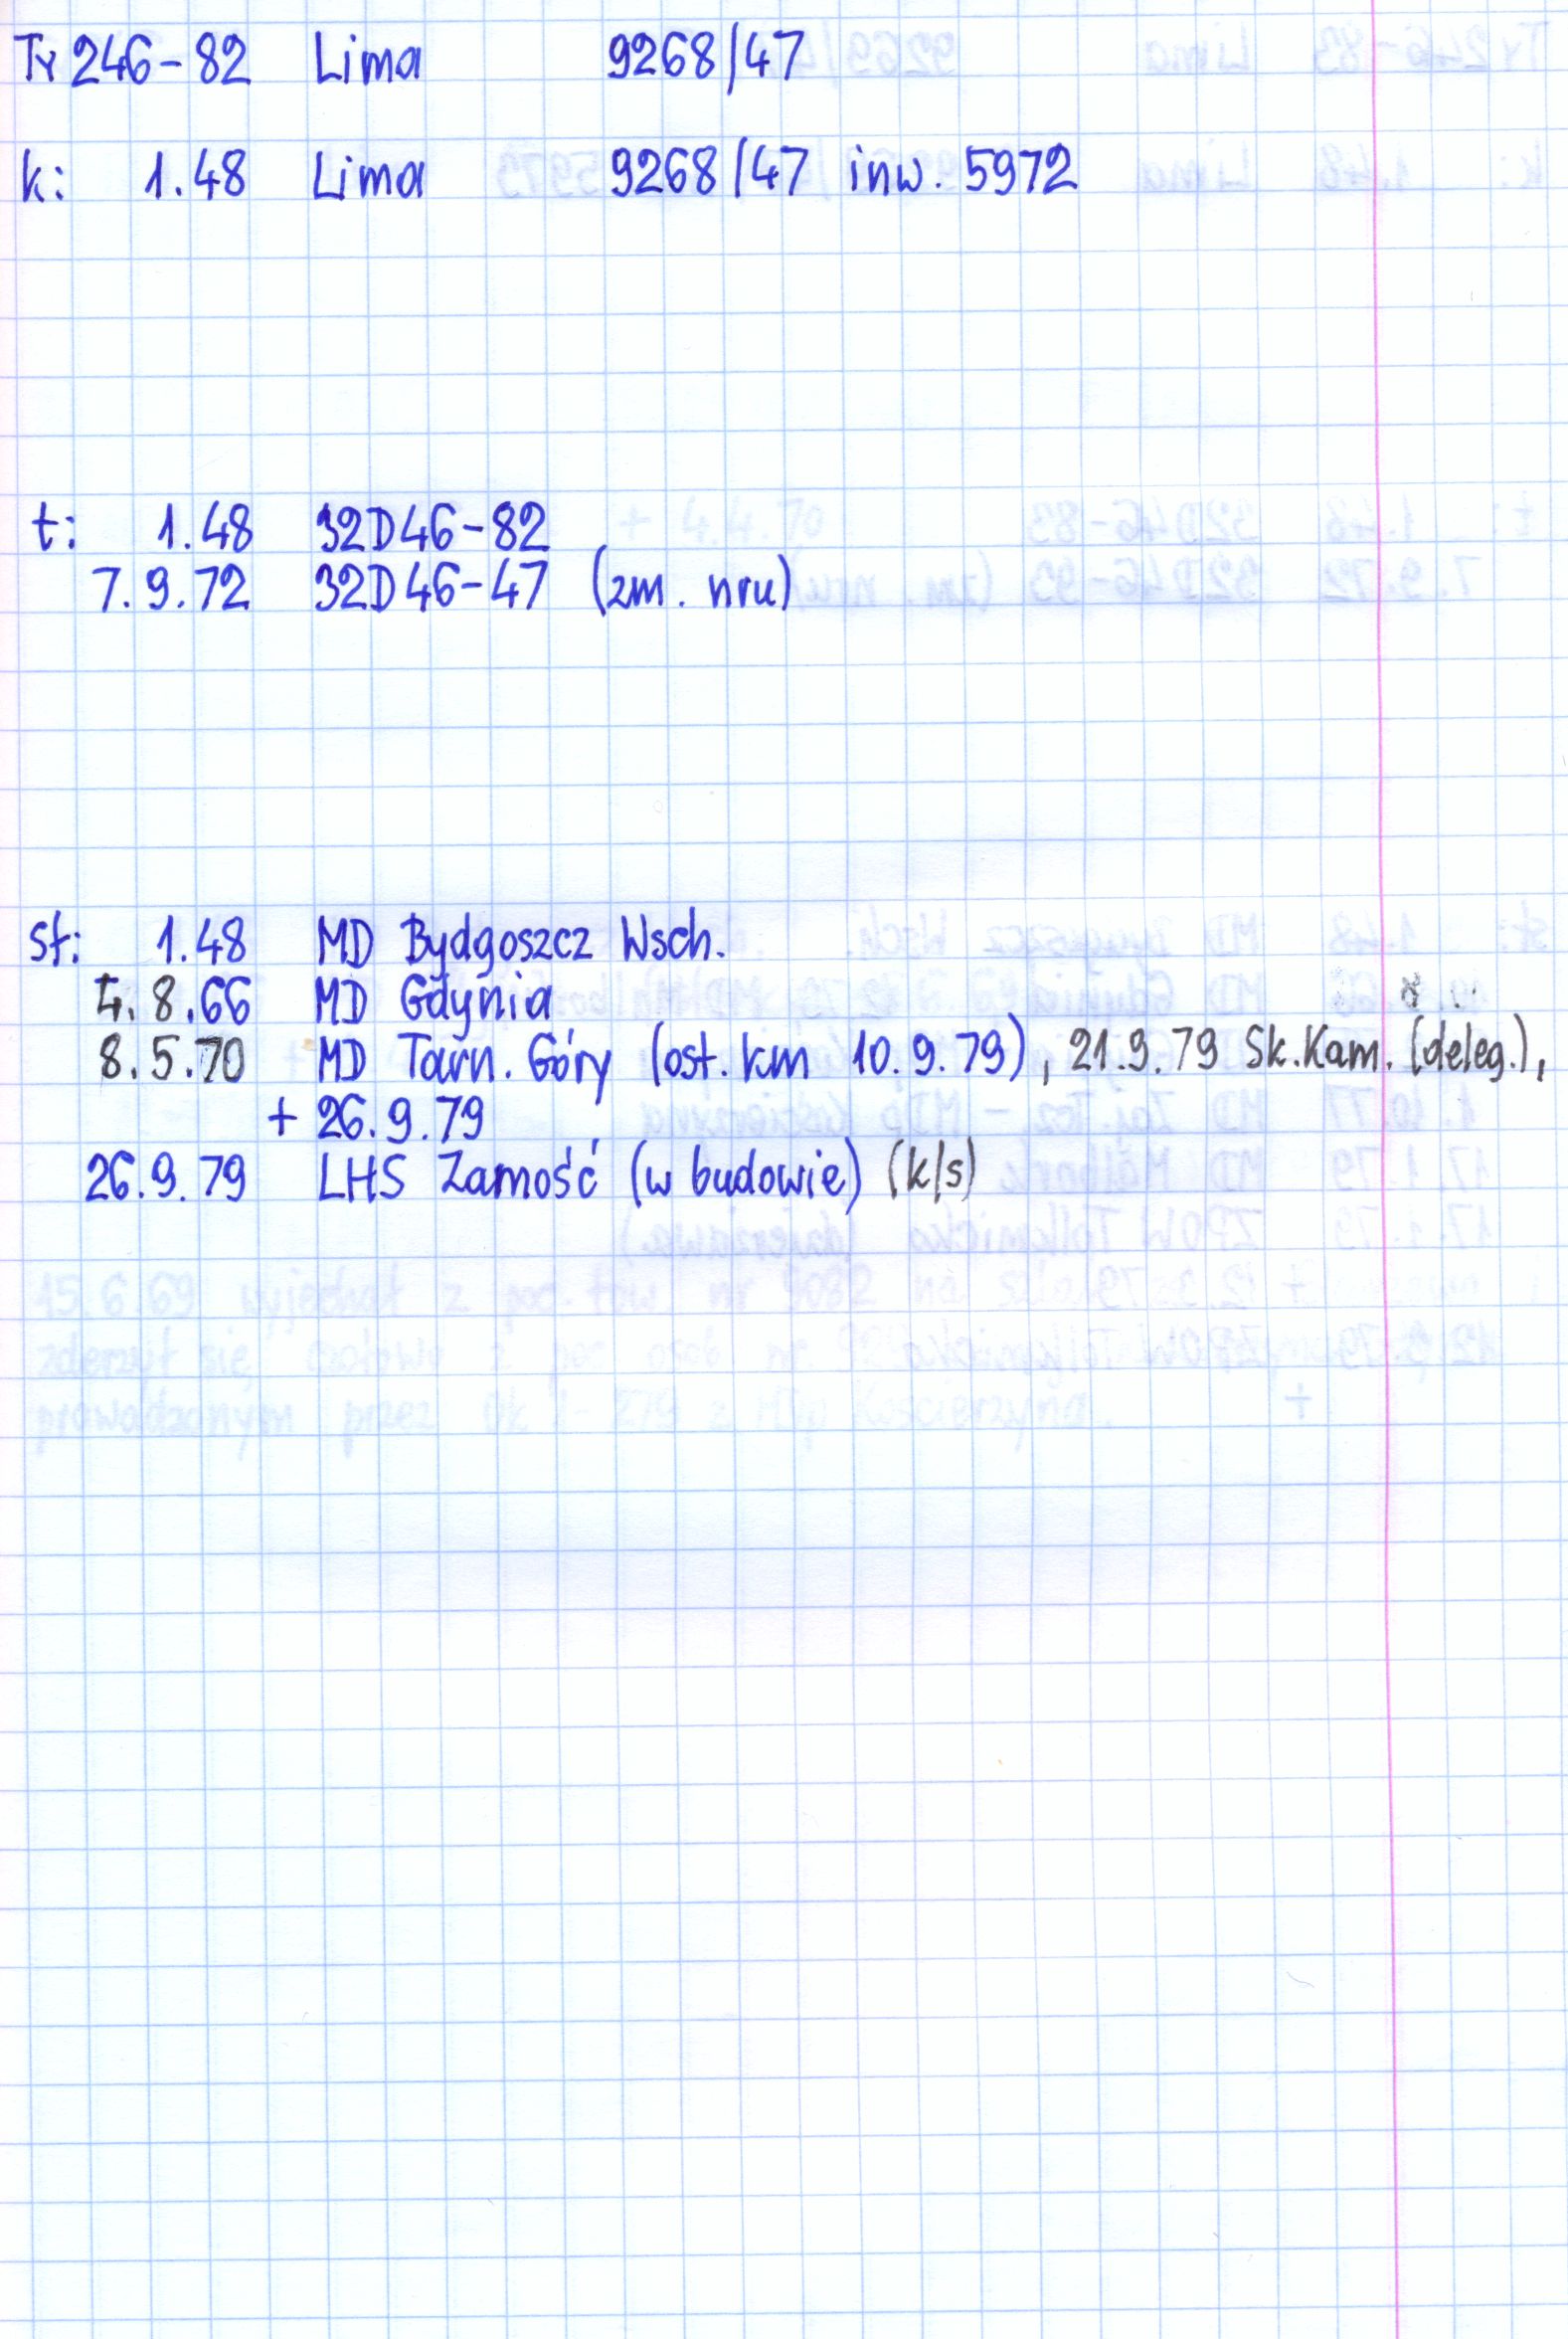 Ty 246-82 Lima 9268/47
k: 1.48 Lima 9268/47 inw. 5972
t: 1.48 32D46-82
7.9.72 32D46-47 (zm. nru)
st: 1.48 MD Bydgoszcz Wsch.
4.8.66 MD Gdynia
8.5.70 MD Tarn. Góry (ost. km 10.9.79), 21.9.79 Sk.Kam. (deleg.),
+ 26.9.79
26.9.79 LHS Zamość (w budowie) (k/s)